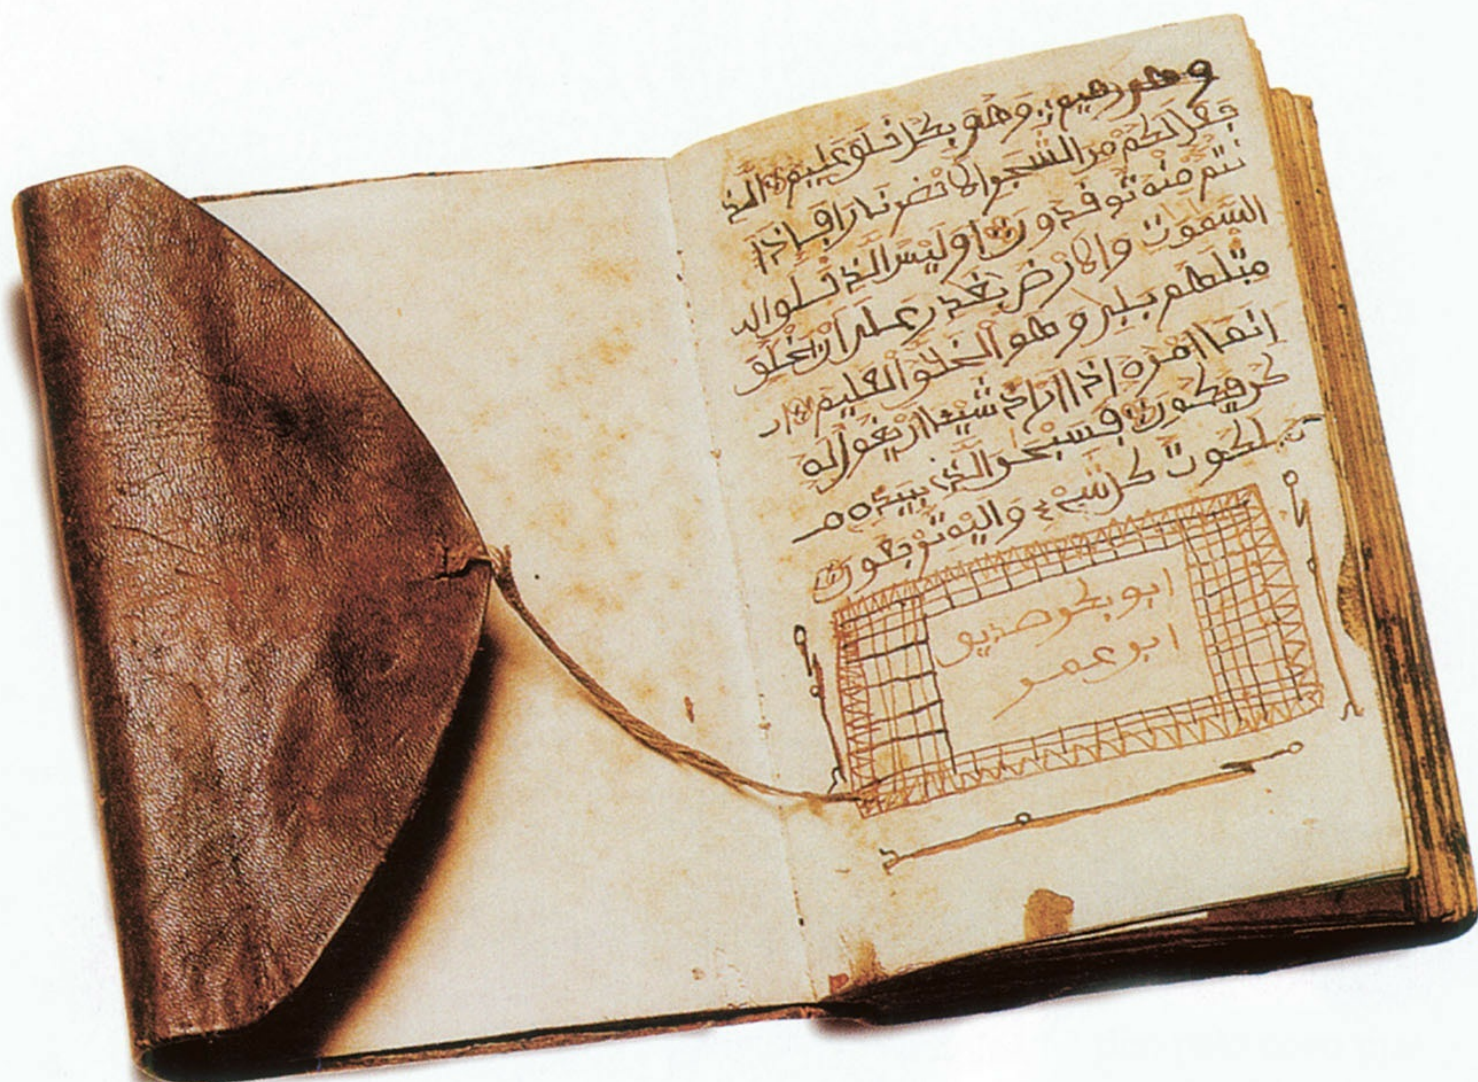 وهى رميم وهو بكل خلق عليم الذ
جعل لكم من الشجر الاخضر نارا فاذا
انتم منه توقدون اوليس الذ خلق ال
السموت والارض بقدر على ان يخلق
مثلهم بلى وهو الخلق العليم
انما امره اذا اراد شيئا ان يقول له
كن فيكون فسبحن الذ بيده م
ملكوت كل شىء واليه ترجعون
ابو بكر صديق
ابو عمر